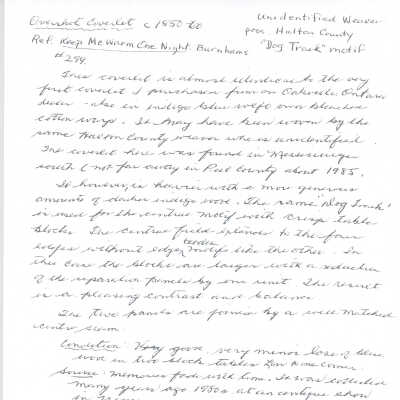 Overshot Coverlet c 1850 to
Unidentified Weaver
poss Halton County
"Dog Track" motif
Ref. Keep Me Warm One Night. Burnhams
#294.
This coverlet is almost identical to the very
first coverlet I purchased from an Oakville, Ontario
dealer - also in indigo blue weft on bleached
cotton warp. It may have been woven by the
same Halton County weaver who is unidentified.
The coverlet here was found in Mississauga
south (not far away in Peel County about 1985.
It however is heavier with a more generous
amounts of darker indigo wool. The same "Dog Track"
is used for the centre motif with crisp table
blocks. The centre field extends to the four
edges without edge border motifs like the other. In
this case the blocks are larger with a reduction
of the separation panels by one unit. The result
is a pleasing contrast and balance
The two panels are joined by a well matched
centre seam.
Condition Very good, very minor loss of blue
wool in two block tables Low corner.
Source: Memories fade with time. It was collected
many years ago 1980s at an antique show
in